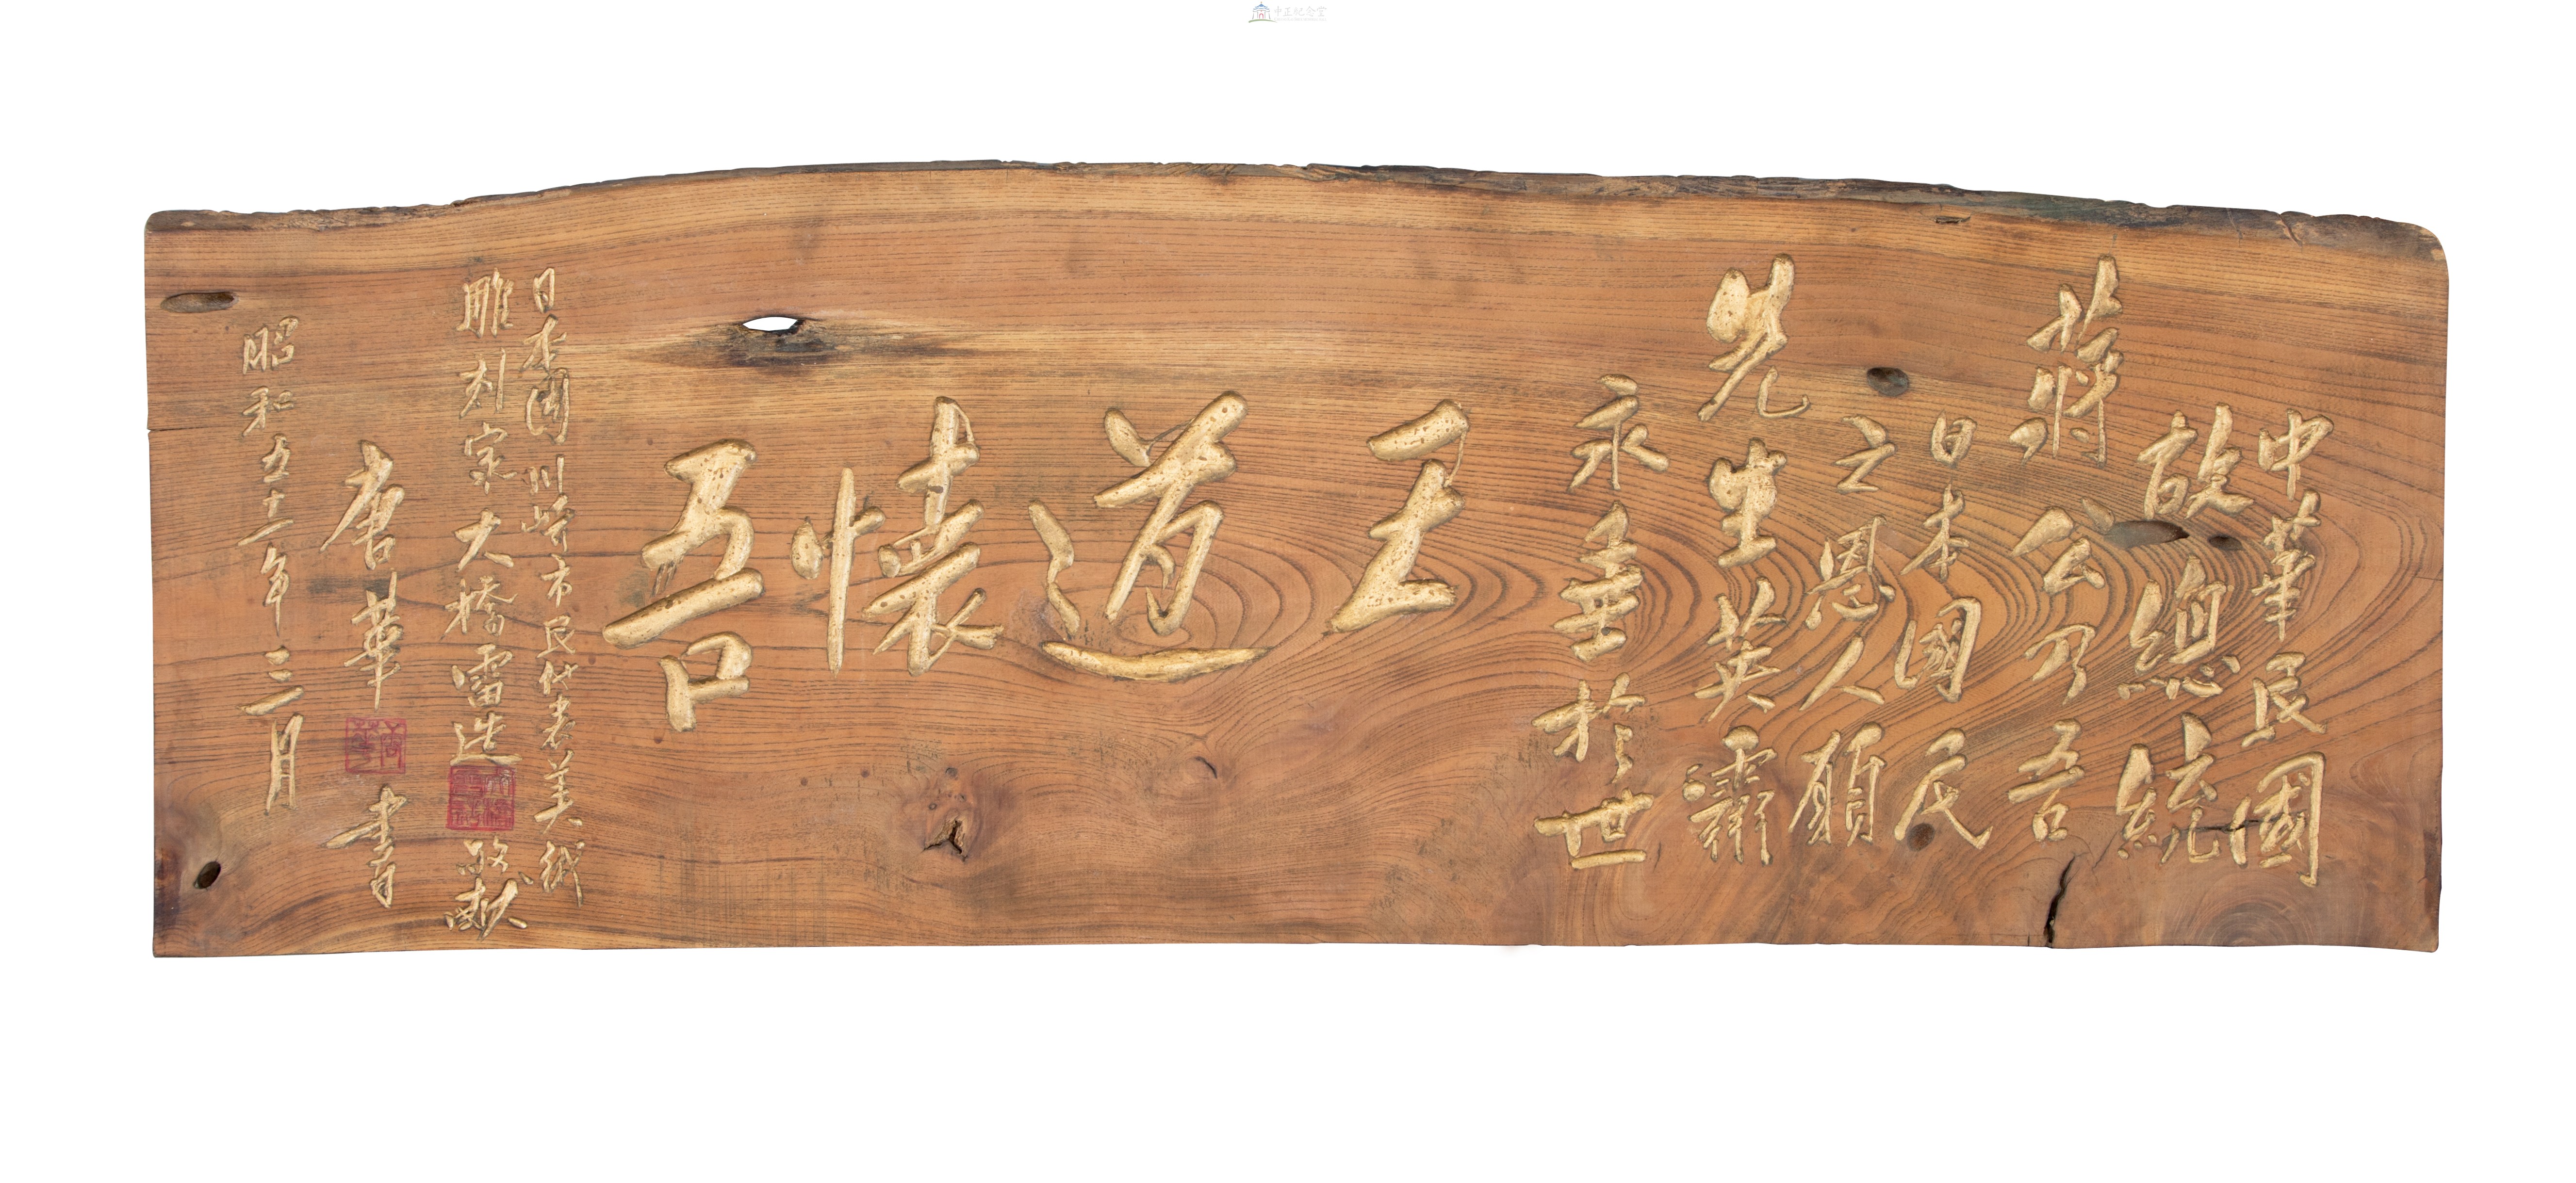 中華民國
故總統
蔣公乃吾
日本國民
之恩人願
先生英靈
永垂於世
王道懷吾
日本國川崎市民代表美
雕刻家大橋雷造敬献
唐華書
昭和五十一年三月
中正紀念堂